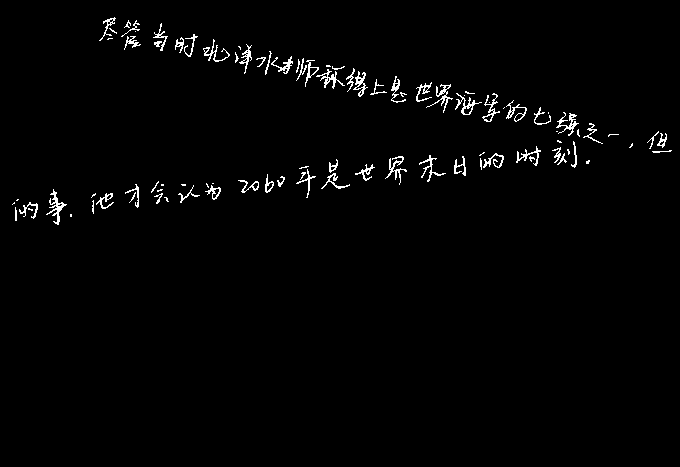 尽管当时北洋水师称得上是世界海军的七强之一，但
的事，他才会认为2060年是世界末日的时刻．